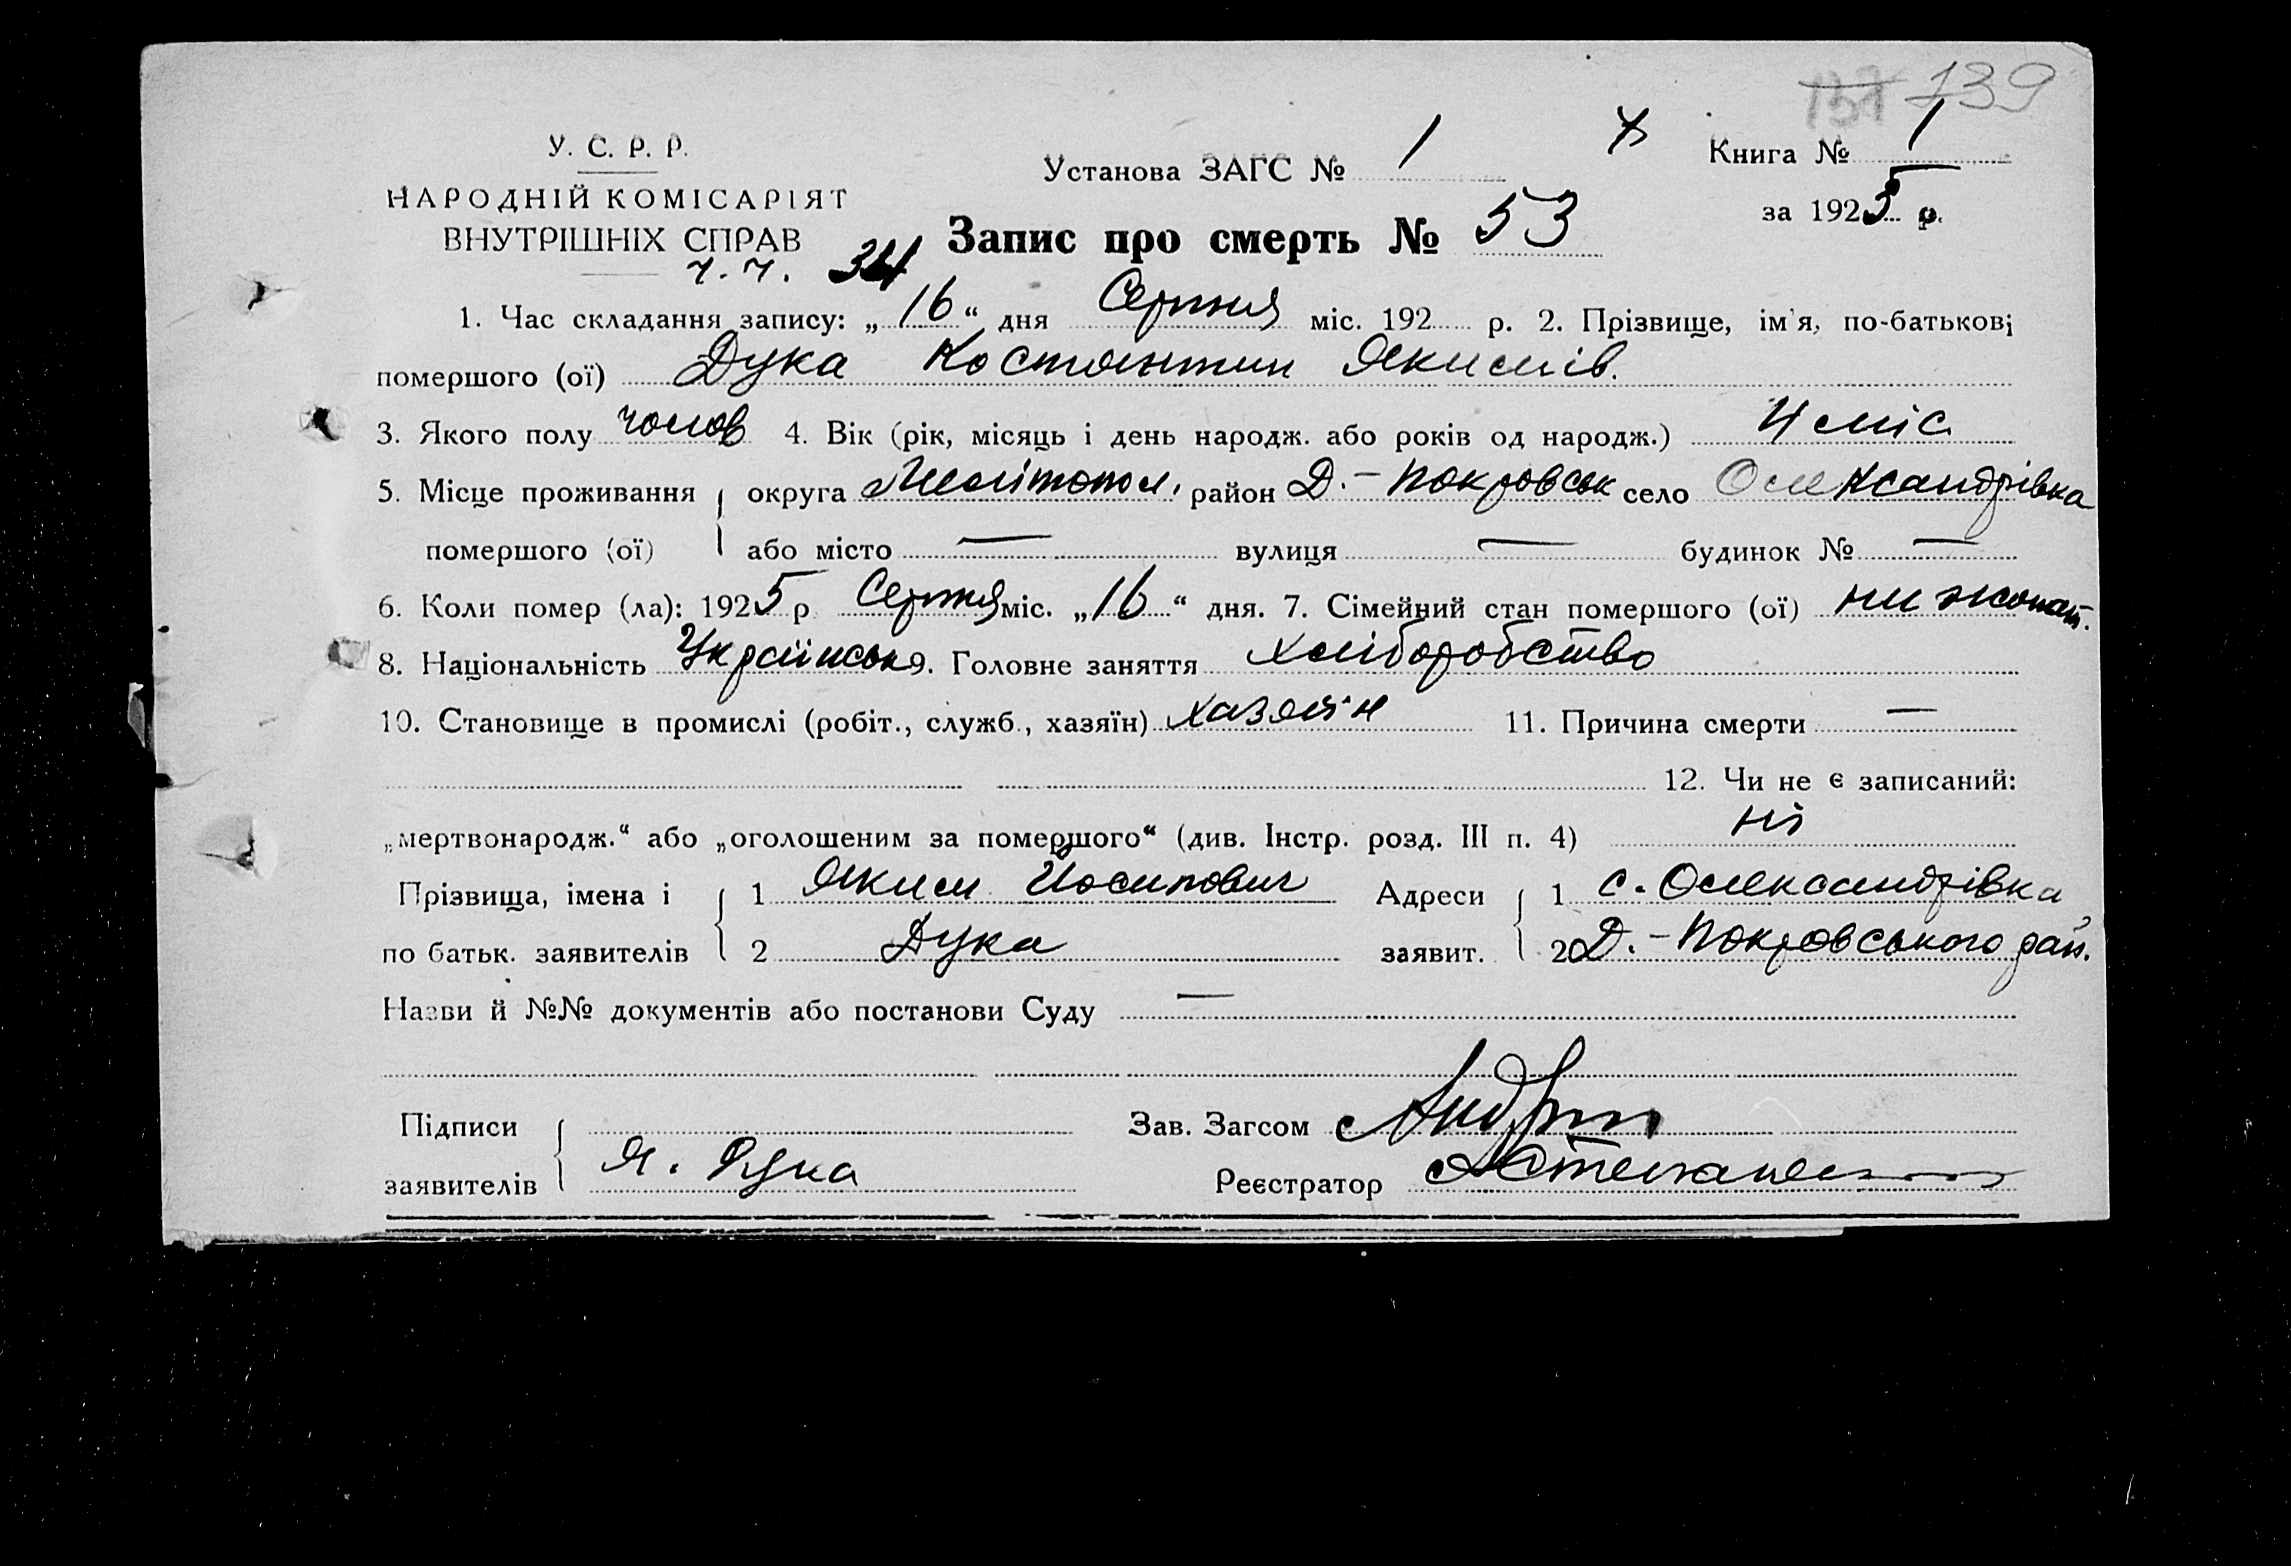 139
У. С. Р. Р.
НАРОДНІЙ КОМІСАРІЯТ
ВНУТРІШНІХ СПРАВ
Установа ЗАГС № 1
Книга № 1
за 1925 р.
ч. ч. 34 Запис про смерть № 53
1. Час складання запису: „16“ дня Серпня міс. 192 р. 2. Прізвище, ім'я, по-батькові
помершого (ої) Дука Костянтин Якимів.
3. Якого полу чолов 4. Вік (рік, місяць і день народж. або років од народж.) 4 міс
5. Місце проживання округа Мелітопол. район Д.-Покровськ село Олександрівка
помершого (ої) або місто — вулиця — будинок № —
6. Коли помер (ла): 1925 р. Серпня міс. „16“ дня. 7. Сімейний стан помершого (ої) ни жонат.
8. Національність Українськ 9. Головне заняття хліборобство
10. Становище в промислі (робіт., служб., хазяїн) хазяїн 11. Причина смерти —
12. Чи не є записаний:
„мертвонародж.“ або „оголошеним за помершого“ (див. Інстр. розд. III п. 4) ні
Прізвища, імена і 1 Яким Йосипович Адреси 1 с. Олександрівка
по батьк. заявителів 2 Дука заявит. 2 Д.-Покровського рай.
Назви й №№ документів або постанови Суду —
Підписи Зав. Загсом
заявителів Я. Дука Реєстратор